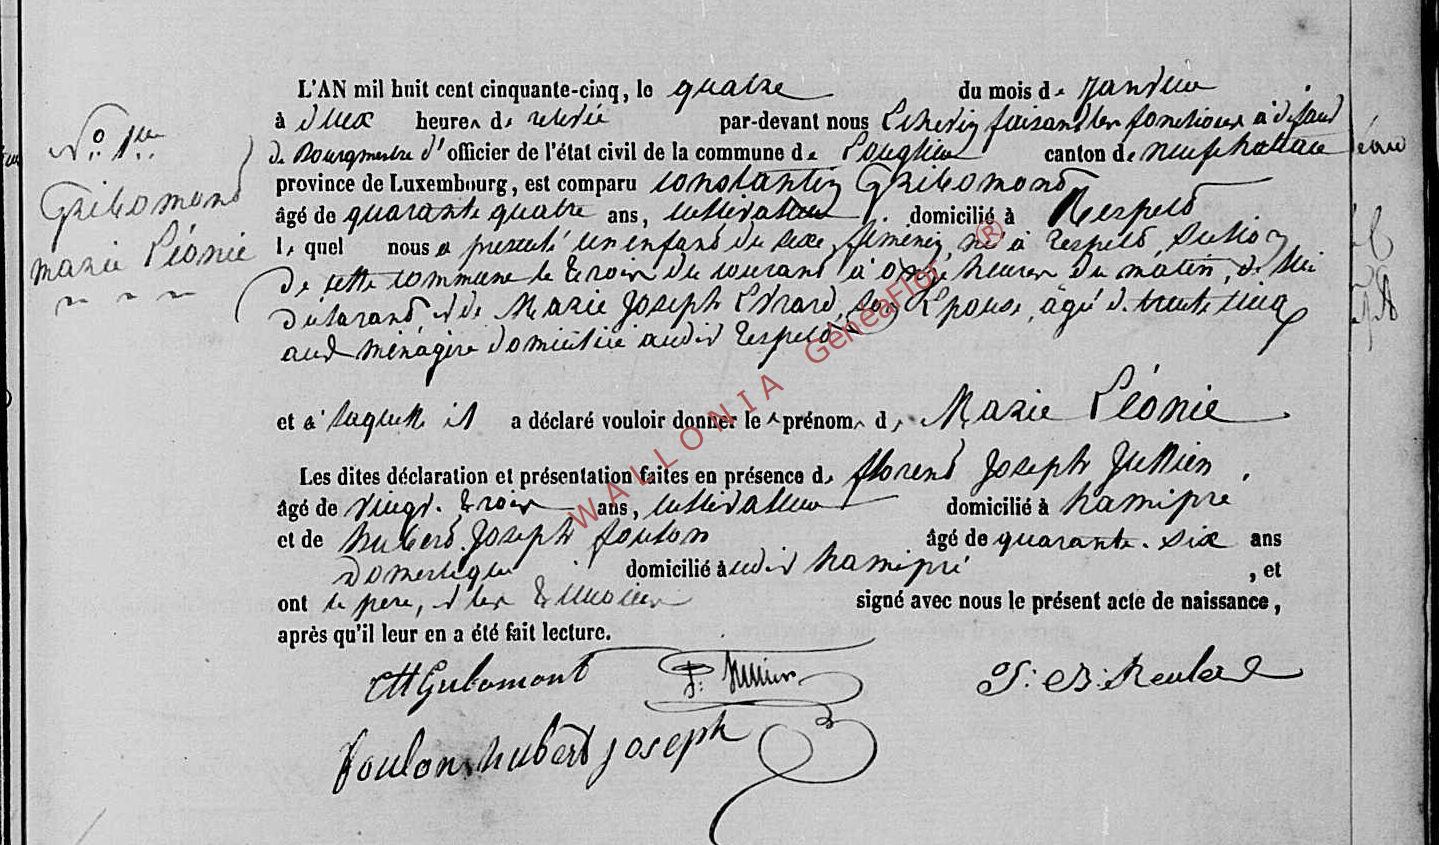 L'AN mil huit cent cinquante-cinq, le quatre du mois de Janvier
à deux heures de relevée par-devant nous Echevin faisant les fonctions à défaut
de Bourgmestre d'officier de l'état civil de la commune de Longlier canton de neufchateau
province de Luxembourg, est comparu Constantin Gribomont
N° 1er
Gribomont
Marie Léonie
âgé de quarante quatre ans, cultivateur domicilié à Respelt
lequel nous a presenté un enfant du sexe féminin, né à Respelt, section
de cette commune le trois du courant à onze heures du matin, de lui
déclarant et de Marie Joseph Evrard, son Epouse, âgé de trente cinq
ans ménagère domiciliée audit Respelt
et à laquelle il a déclaré vouloir donner les prénoms de Marie Léonie
Les dites déclaration et présentation faites en présence de florent Joseph Jullien
âgé de vingt-trois ans, cultivateur domicilié à hamipré
et de hubert Joseph foulon âgé de quarante-six ans
domestique domicilié audit hamipré, et
ont le père, et les témoins signé avec nous le présent acte de naissance,
après qu'il leur en a été fait lecture.
Gribomont F: Jullien J: B: 
foulon hubert joseph
WALLONIA GeneaFlor®